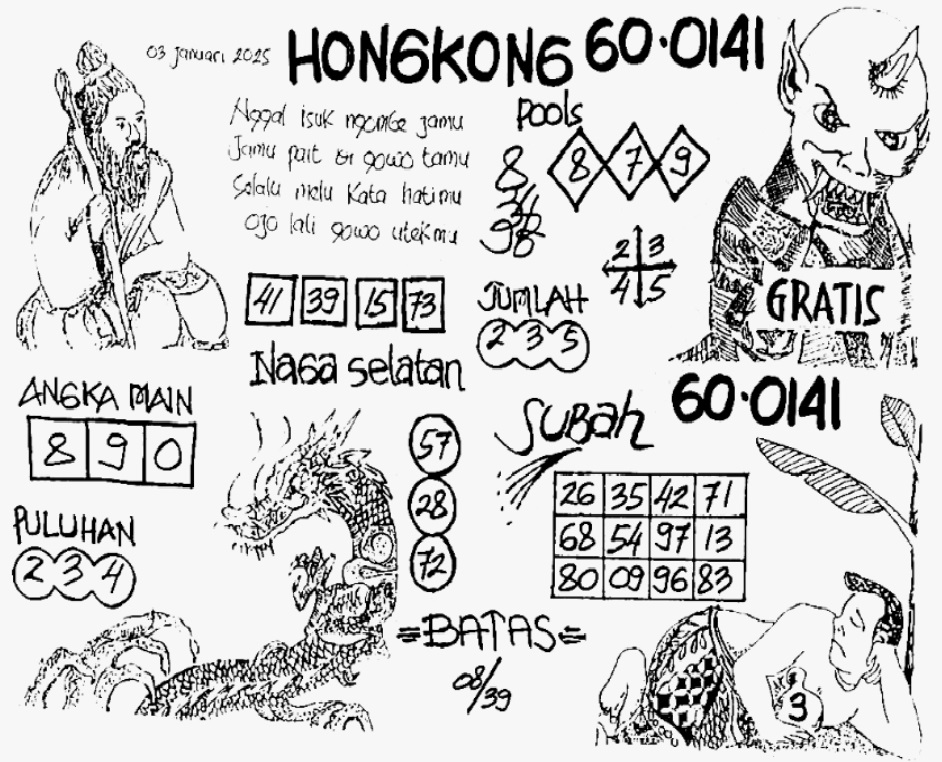 03 Januari 2025
HONGKONG 60·0141
Pools
Nggal isuk ngombe jamu
Jamu pait di gowo tamu
Selalu melu Kata hatimu
Ojo lali gowo utekmu
8 7 9
8
2 3
4 5
41 39 15 73
JUMLAH
2 3 5
GRATIS
Naga Selatan
ANGKA MAIN
8 9 0
PULUHAN
2 3 4
57
28
72
=BATAS=
08/39
SUBAh
60·0141
26 35 42 71
68 54 97 13
80 09 96 83
3